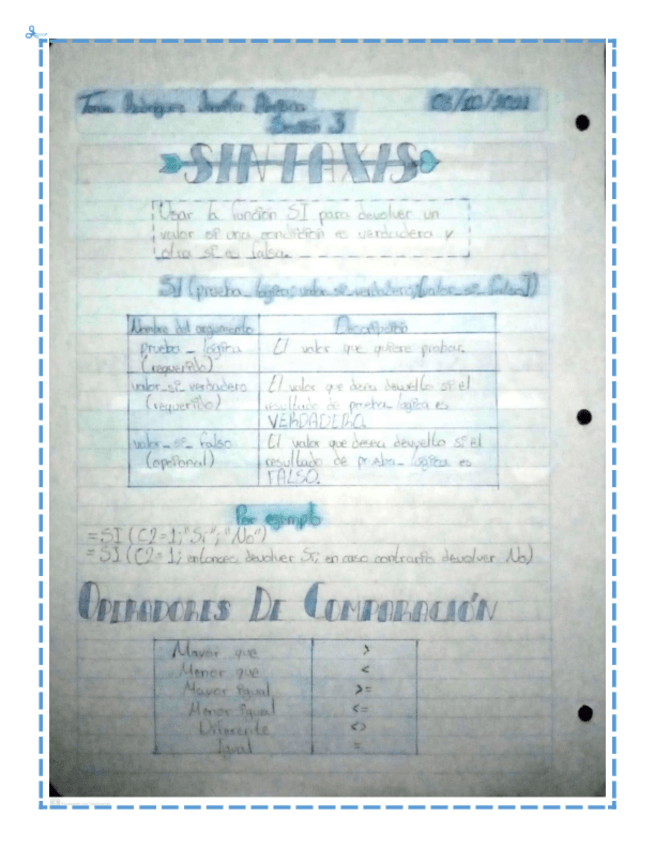 Sesión 3
SINTAXIS
Usar la función SI para devolver un
valor si una condición es verdadera y
otra si es falsa.
SI (prueba_lógica; valor_si_verdadero; [valor_si_falso])
Nombre del argumento
Descripción
prueba_lógica
(requerido)
El valor que quiere probar.
valor_si_verdadero
(requerido)
El valor que desea devuelto si el
resultado de prueba_lógica es
VERDADERO.
valor_si_falso
(opcional)
El valor que desea devuelto si el
resultado de prueba_lógica es
FALSO.
Por ejemplo
=SI (C2=1;"Si";"No")
=SI (C2=1; entonces devolver Si; en caso contrario devolver No)
OPERADORES DE COMPARACIÓN
Mayor que >
Menor que <
Mayor igual >=
Menor igual <=
Diferente <>
Igual =